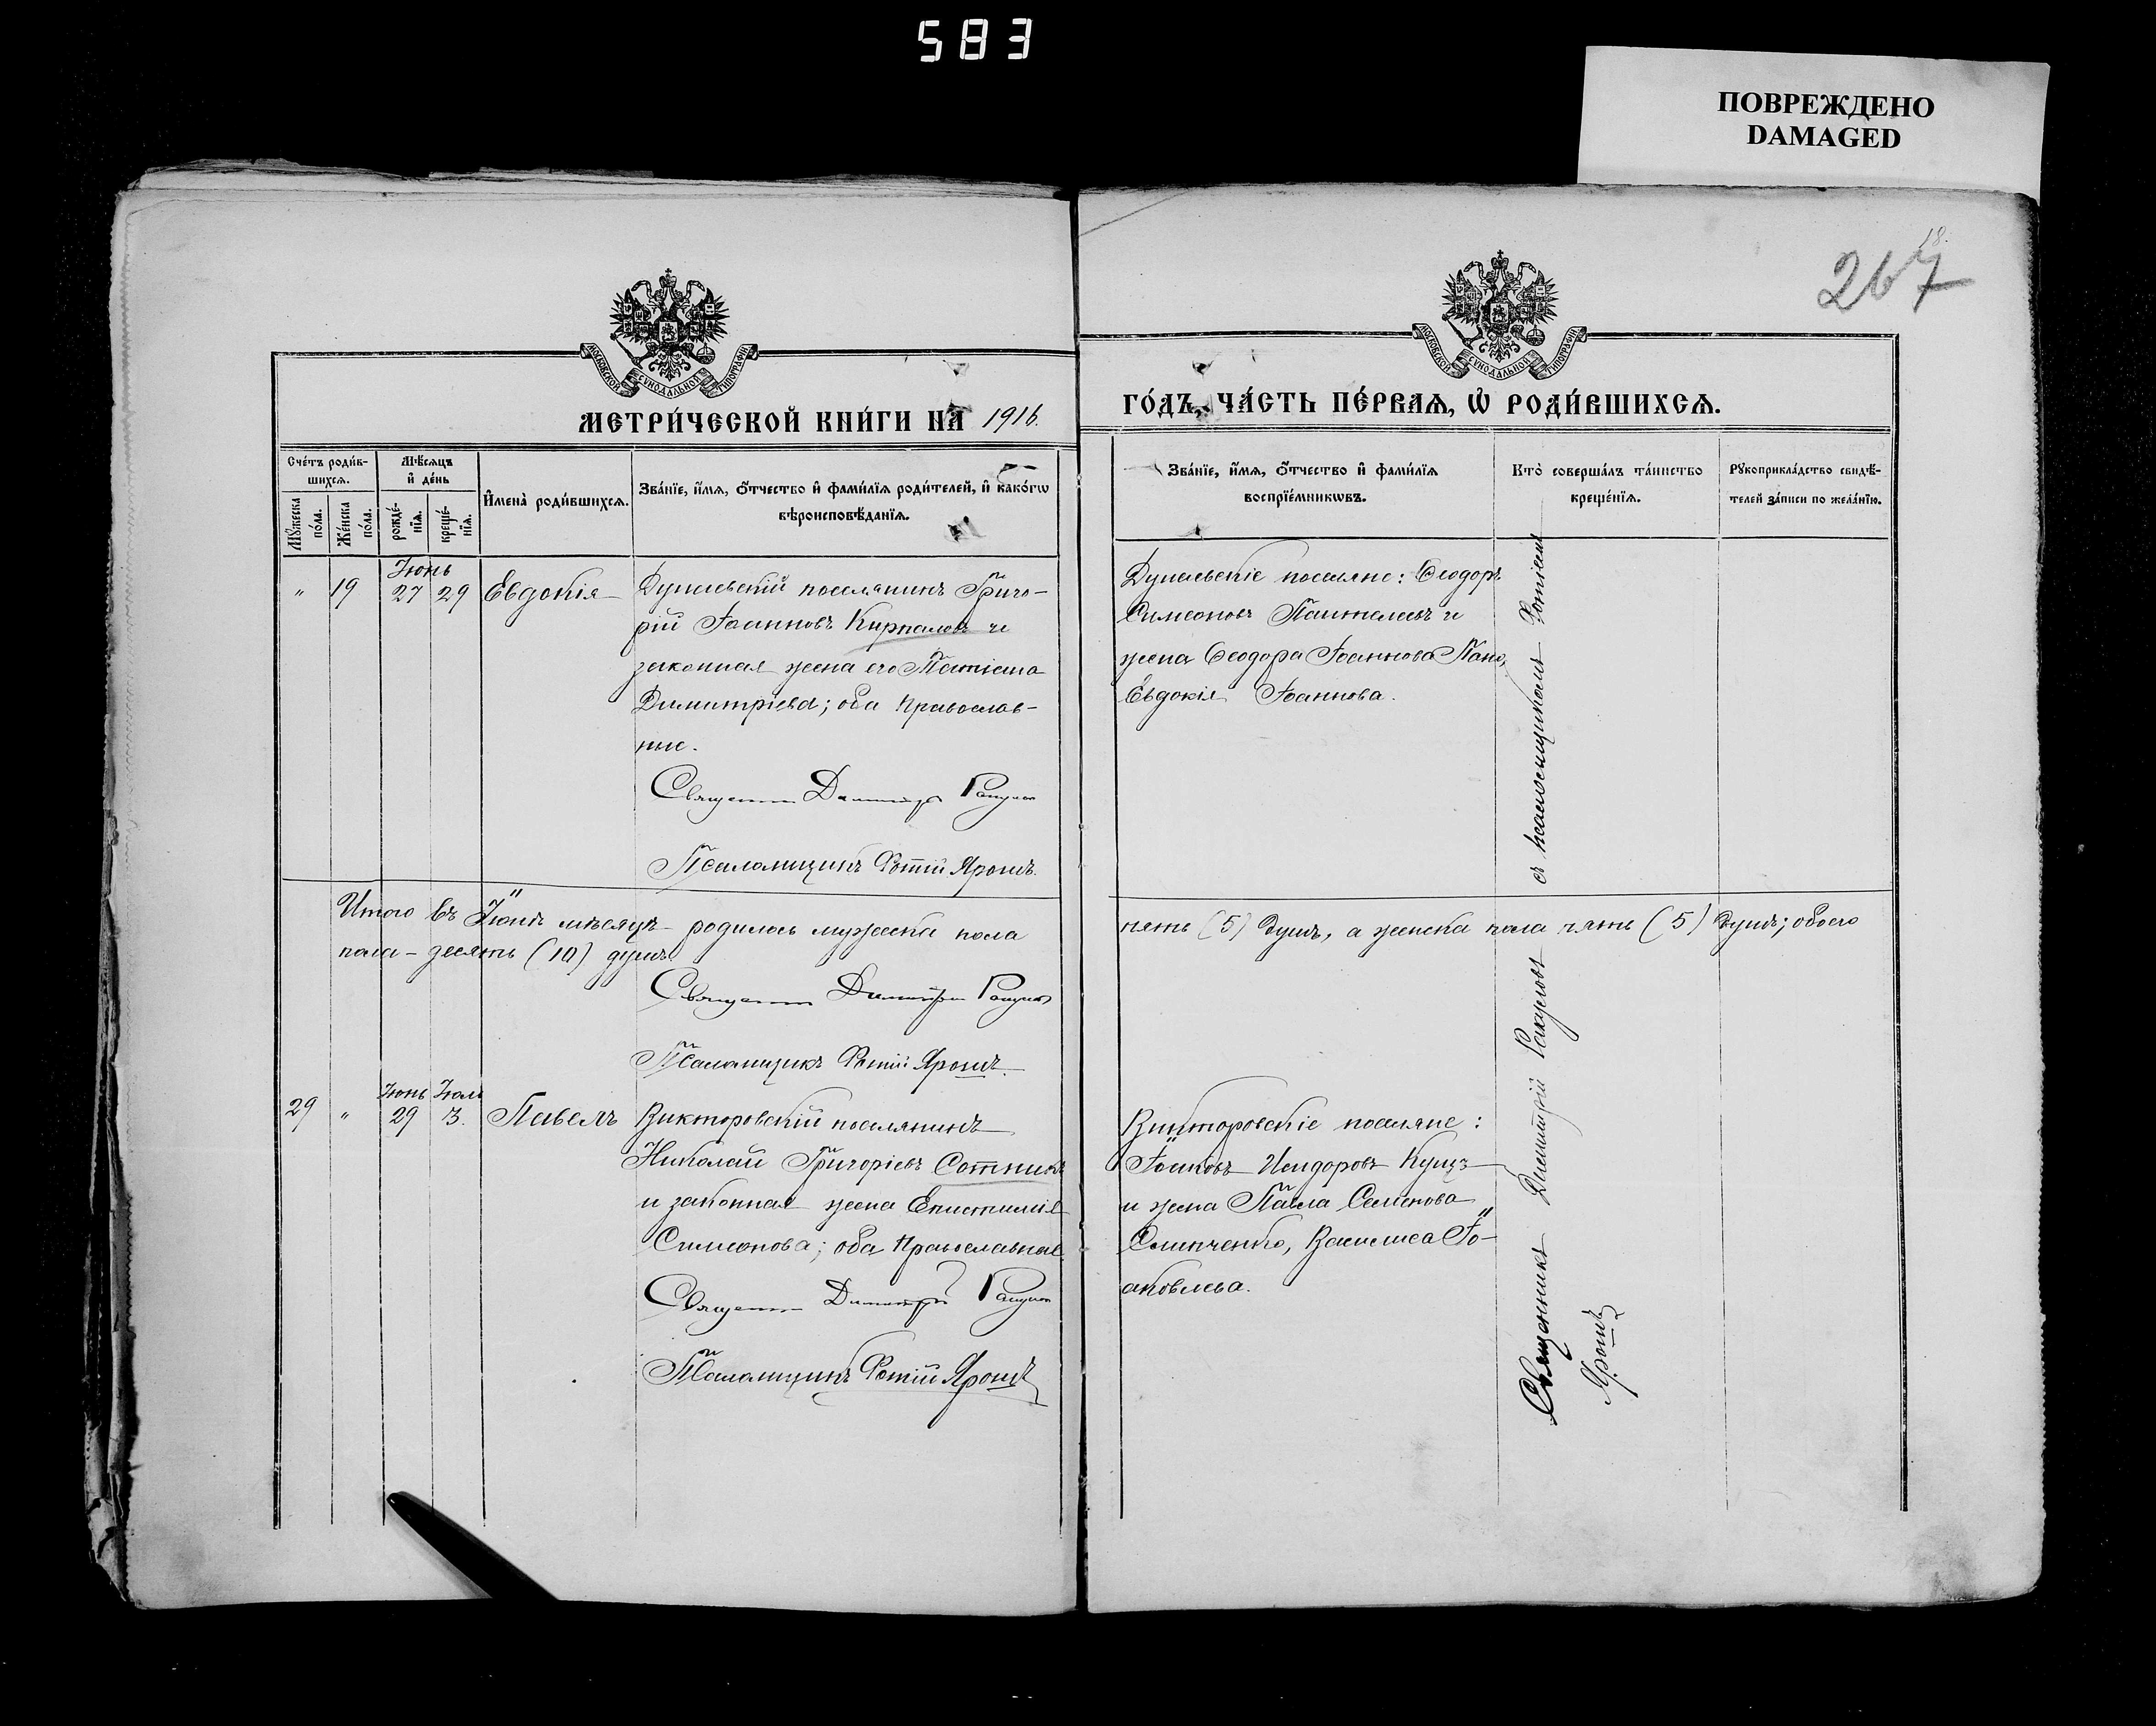 583
ПОВРЕЖДЕНО
DAMAGED
18.
267
МОСКОВСКОЙ СУНОДАЛЬНОЙ ТИПОГРАФІИ
МОСКОВСКОЙ СУНОДАЛЬНОЙ ТИПОГРАФІИ
МЕТРИ́ЧЕСКОЙ КНИ́ГИ НА 1916.
ГО́ДЪ, ЧА́СТЬ ПЕ́РВАѦ, Ѡ РОДИ́ВШИХСѦ.
Сче́тъ роди́в-
шихсѧ.
Мꙋ́жеска по́ла.
Же́нска по́ла.
Мѣ́сѧцъ
и҆ де́нь
рожде́-
нїѧ.
креще́-
нїѧ.
И҆мена̀ роди́вшихсѧ.
Зва́нїе, и҆́мѧ, ѻ҆́тчество и҆ фами́лїѧ роди́телей, и҆ како́гѡ
вѣроисповѣ́данїѧ.
Зва́нїе, и҆́мѧ, ѻ҆́тчество и҆ фами́лїѧ
воспрїе́мникѡвъ.
Кто̀ соверша́лъ та́инство
креще́нїѧ.
Рꙋкоприкла́дство свидѣ́-
телей за́писи по жела́нїю.
Іюнь
" 19 27 29 Евдокія
Дулгевскій поселянинъ Григо-
рій Іоанновъ Курталовъ и
законная жена его Татіана
Димитріева; оба Православ-
ные.
Священник Димитрій Ракулов
Псаломщикъ Фотій Ярошъ.
поселяне: Феодоръ
Симеоновъ Пантелеевъ и
жена Феодора Іоаннова
Евдокія Іоаннова.
Итого въ Іюнѣ мѣсяцѣ родилось мужеска пола
пять (5) душъ, а женска пола пять (5) душъ; обоего
пола - десять (10) душъ.
Священник Димитрій Ракулов
Псаломщикъ Фотій Ярошъ.
Іюнь Іюль
29 " 29 3. Павелъ
Викторовскій поселянинъ
Николай Григоріевъ Сотникъ
и законная жена Епистимія
Симеонова; оба Православные
Священник Димитрій Ракулов
Псаломщикъ Фотій Ярошъ
Викторовскіе поселяне:
Іоаковъ Исидоровъ Куцъ
и жена Павла Семенова
Слипченко, Василиса Іо-
аковлева.
Священникъ Димитрій Ракуловъ съ псаломщикомъ Фотіемъ
Ярошъ